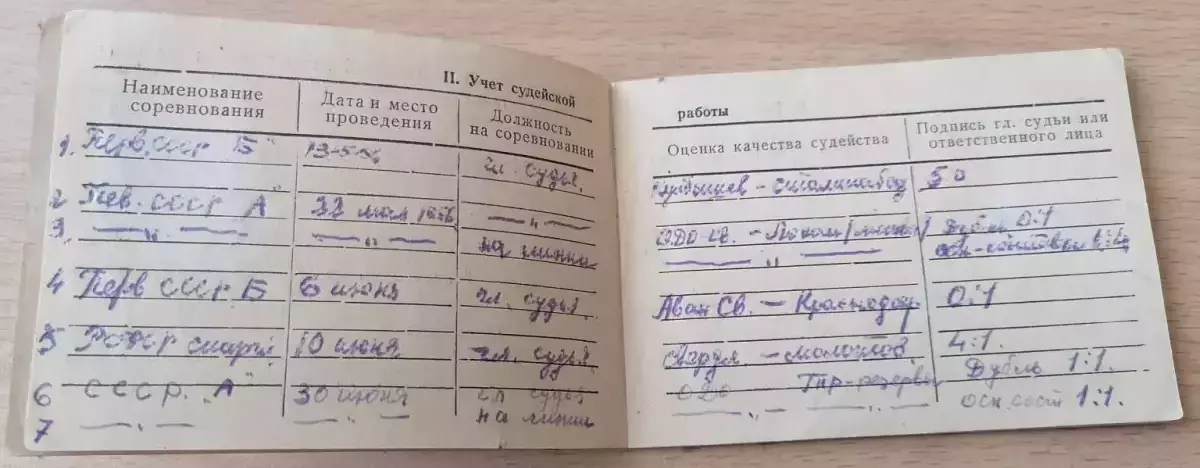 II. Учет судейской
Наименование соревнования
Дата и место проведения
Должность на соревновании
1. Перв. ссср Б"
13-5-56
гл. судья.
2 Пев. СССР А"
22 мая 1956
— „ —
3. — „ —
— „ —
на линии
4 Перв СССР Б
6 июня
гл. судья.
5
10 июня
гл. судья.
6 СССР. „А"
30 июня
гл судья
7 — „ —
— „ —
на линии
работы
Оценка качества судейства
Подпись гл. судьи или ответственного лица
– Сталинабад
5:0
ОДО св. – Локом
Дубль 0:1
— „ —
Аван Св. – Краснодар
0:1
– Молотов.
4:1.
ОДО Тр-резервы
Дубль 1:1.
— „ — „ —
осн. сост 1:1.